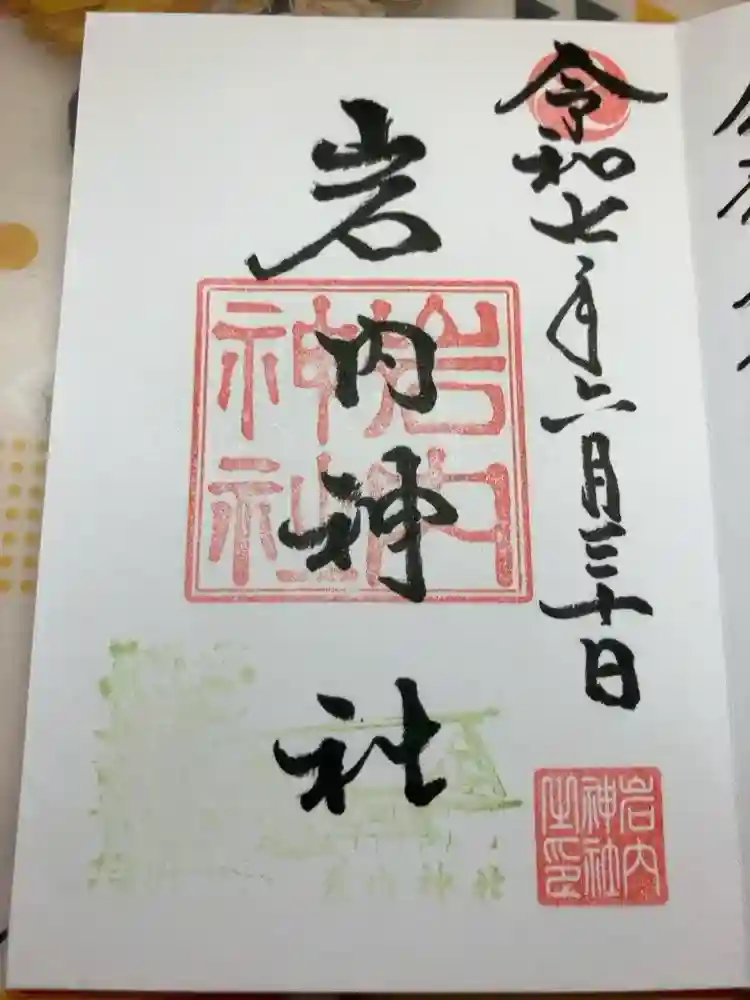 令和七年六月三十日
岩内神社
岩内
神社
岩内
神社
之印